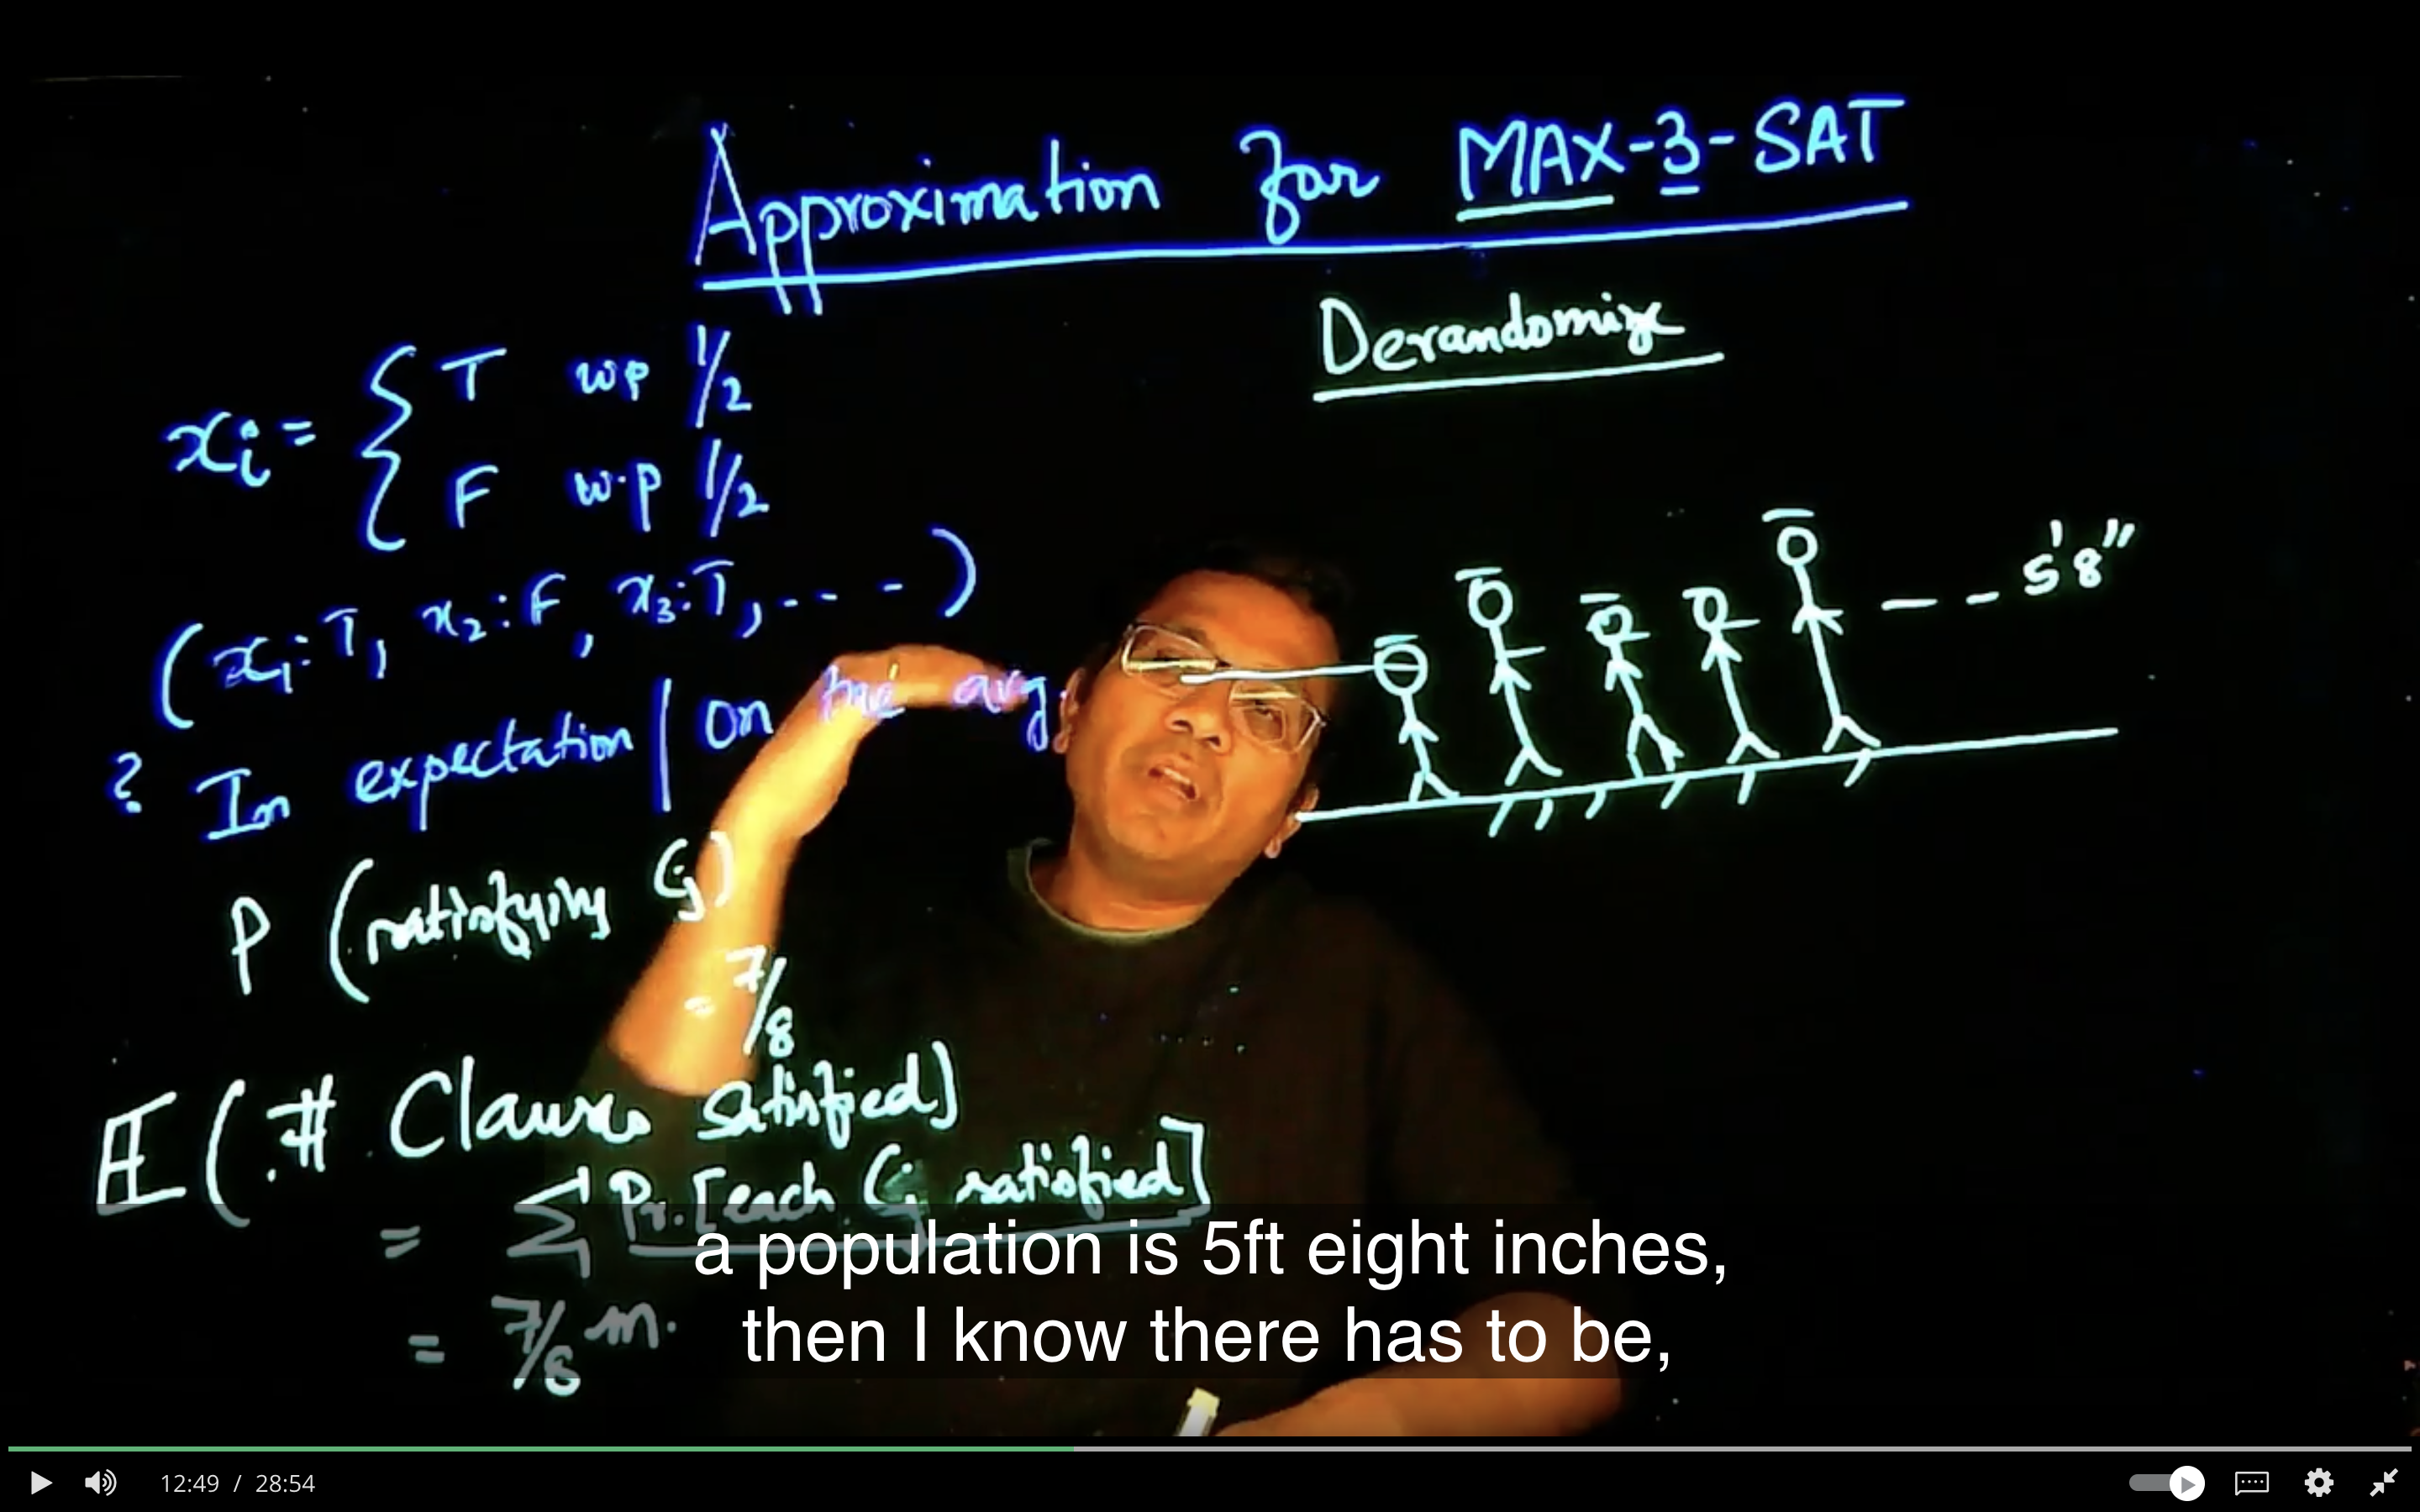 Approximation for MAX-3-SAT
Derandomize
xi = { T wp 1/2
F w.p 1/2
(x1:T, x2:F, x3:T, - - -)
5'8"
? In expectation | on the avg.
P (satisfying Cj)
= 7/8
E(# Clauses satisfied]
= Σ Pr.[each Cj satisfied]
= 7/8 m.
a population is 5ft eight inches,
then I know there has to be,
12:49 / 28:54